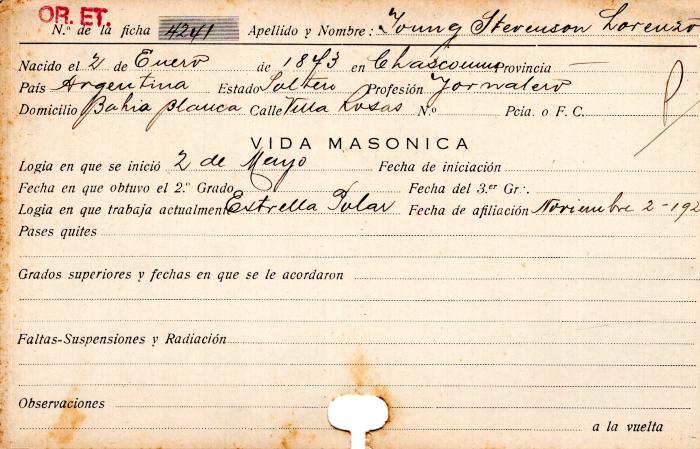 OR. ET.
N.º de la ficha 4241 Apellido y Nombre: Young Stevenson Lorenzo
Nacido el 2 de Enero de 1873 en Chascomus Provincia —
País Argentina Estado Soltero Profesión Jornalero
Domicilio Bahia Blanca Calle Villa Rosas N.º Pcia. o F. C.
VIDA MASONICA
Logia en que se inició 2 de Mayo Fecha de iniciación
Fecha en que obtuvo el 2.º Grado Fecha del 3.er Gr∴
Logia en que trabaja actualment Estrella Polar Fecha de afiliación Noviembre 2-192
Pases quites
Grados superiores y fechas en que se le acordaron
Faltas-Suspensiones y Radiación
Observaciones
a la vuelta